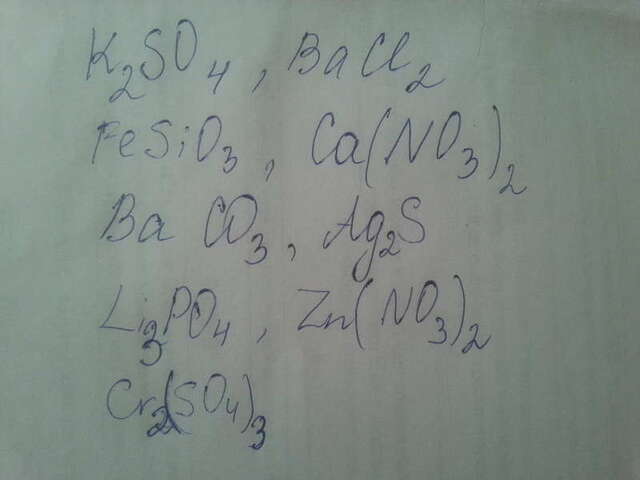 K₂SO₄, BaCl₂
FeSiO₃, Ca(NO₃)₂
BaCO₃, Ag₂S
Li₃PO₄, Zn(NO₃)₂
Cr₂(SO₄)₃